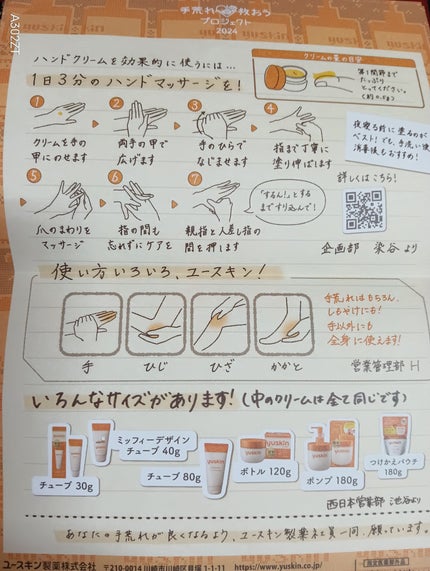 手荒れ救おう
プロジェクト
2024
A302ZT
ハンドクリームを効果的に使うには…
1日3分のハンドマッサージを!
クリームの量の目安
第1関節まで
たっぷり
とってください。
1
クリームを手の
甲にのせます
2
両手の甲で
広げます
3
手のひらで
なじませます
4
指まで丁寧に
塗り伸ばします
夜寝る前に塗るのが
ベスト!でも、手洗い後
消毒後もおすすめ!
詳しくはこちら!
5
爪のまわりを
マッサージ
6
指の間も
忘れずにケアを
7
親指と人差し指の
間を押します
「するん!」とする
まですり込んで!
企画部 染谷より
使い方いろいろ、ユースキン!
手
ひじ
ひざ
かかと
手荒れはもちろん、
しもやけにも!
手以外にも
全身に使えます!
営業管理部 H
いろんなサイズがあります!(中のクリームは全て同じです)
チューブ 30g
ミッフィーデザイン
チューブ 40g
チューブ 80g
ボトル 120g
ポンプ 180g
つけかえパウチ
180g
西日本営業部 池谷より
あなたの手荒れが良くなるよう、ユースキン製薬社員一同、願っています。
ユースキン製薬株式会社 〒210-0014 川崎市川崎区貝塚 1-1-11 https://www.yuskin.co.jp/